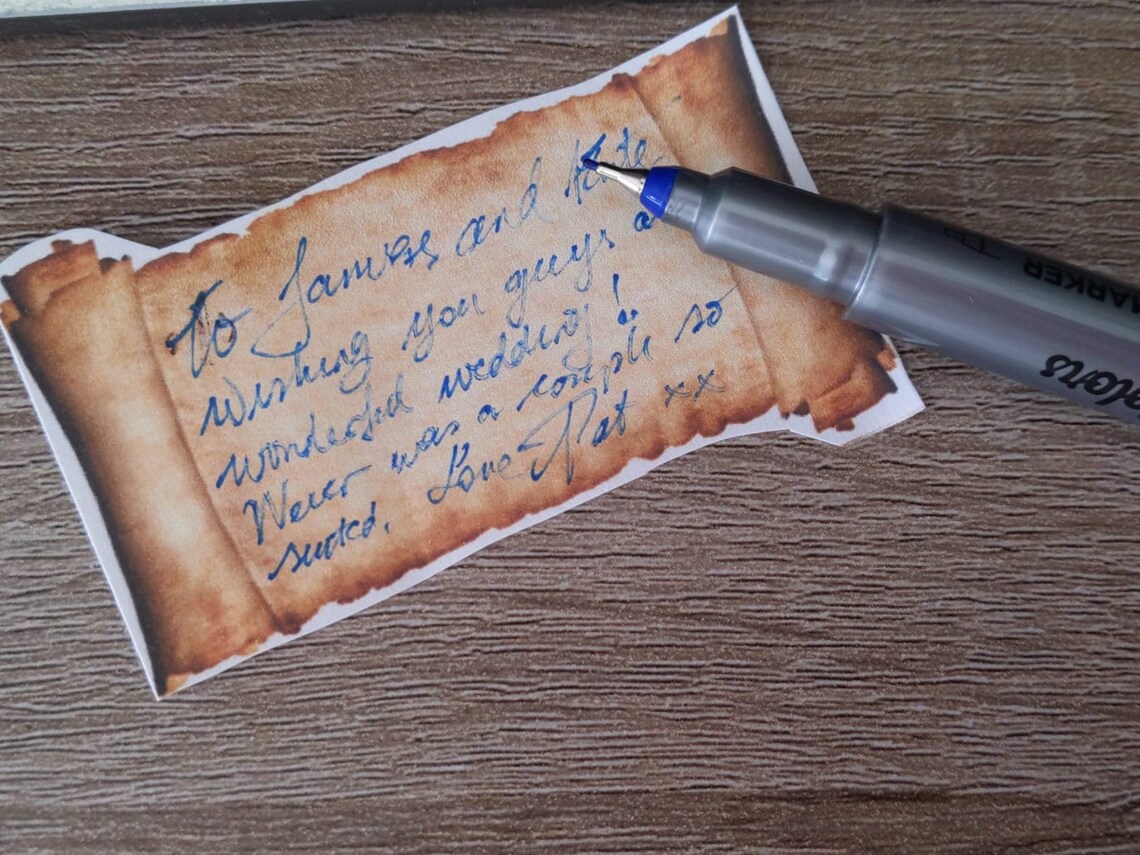 To James and Kate
Wishing you guys a
wonderful wedding!
Never was a couple so
suited. Love Pat xx
MARKER